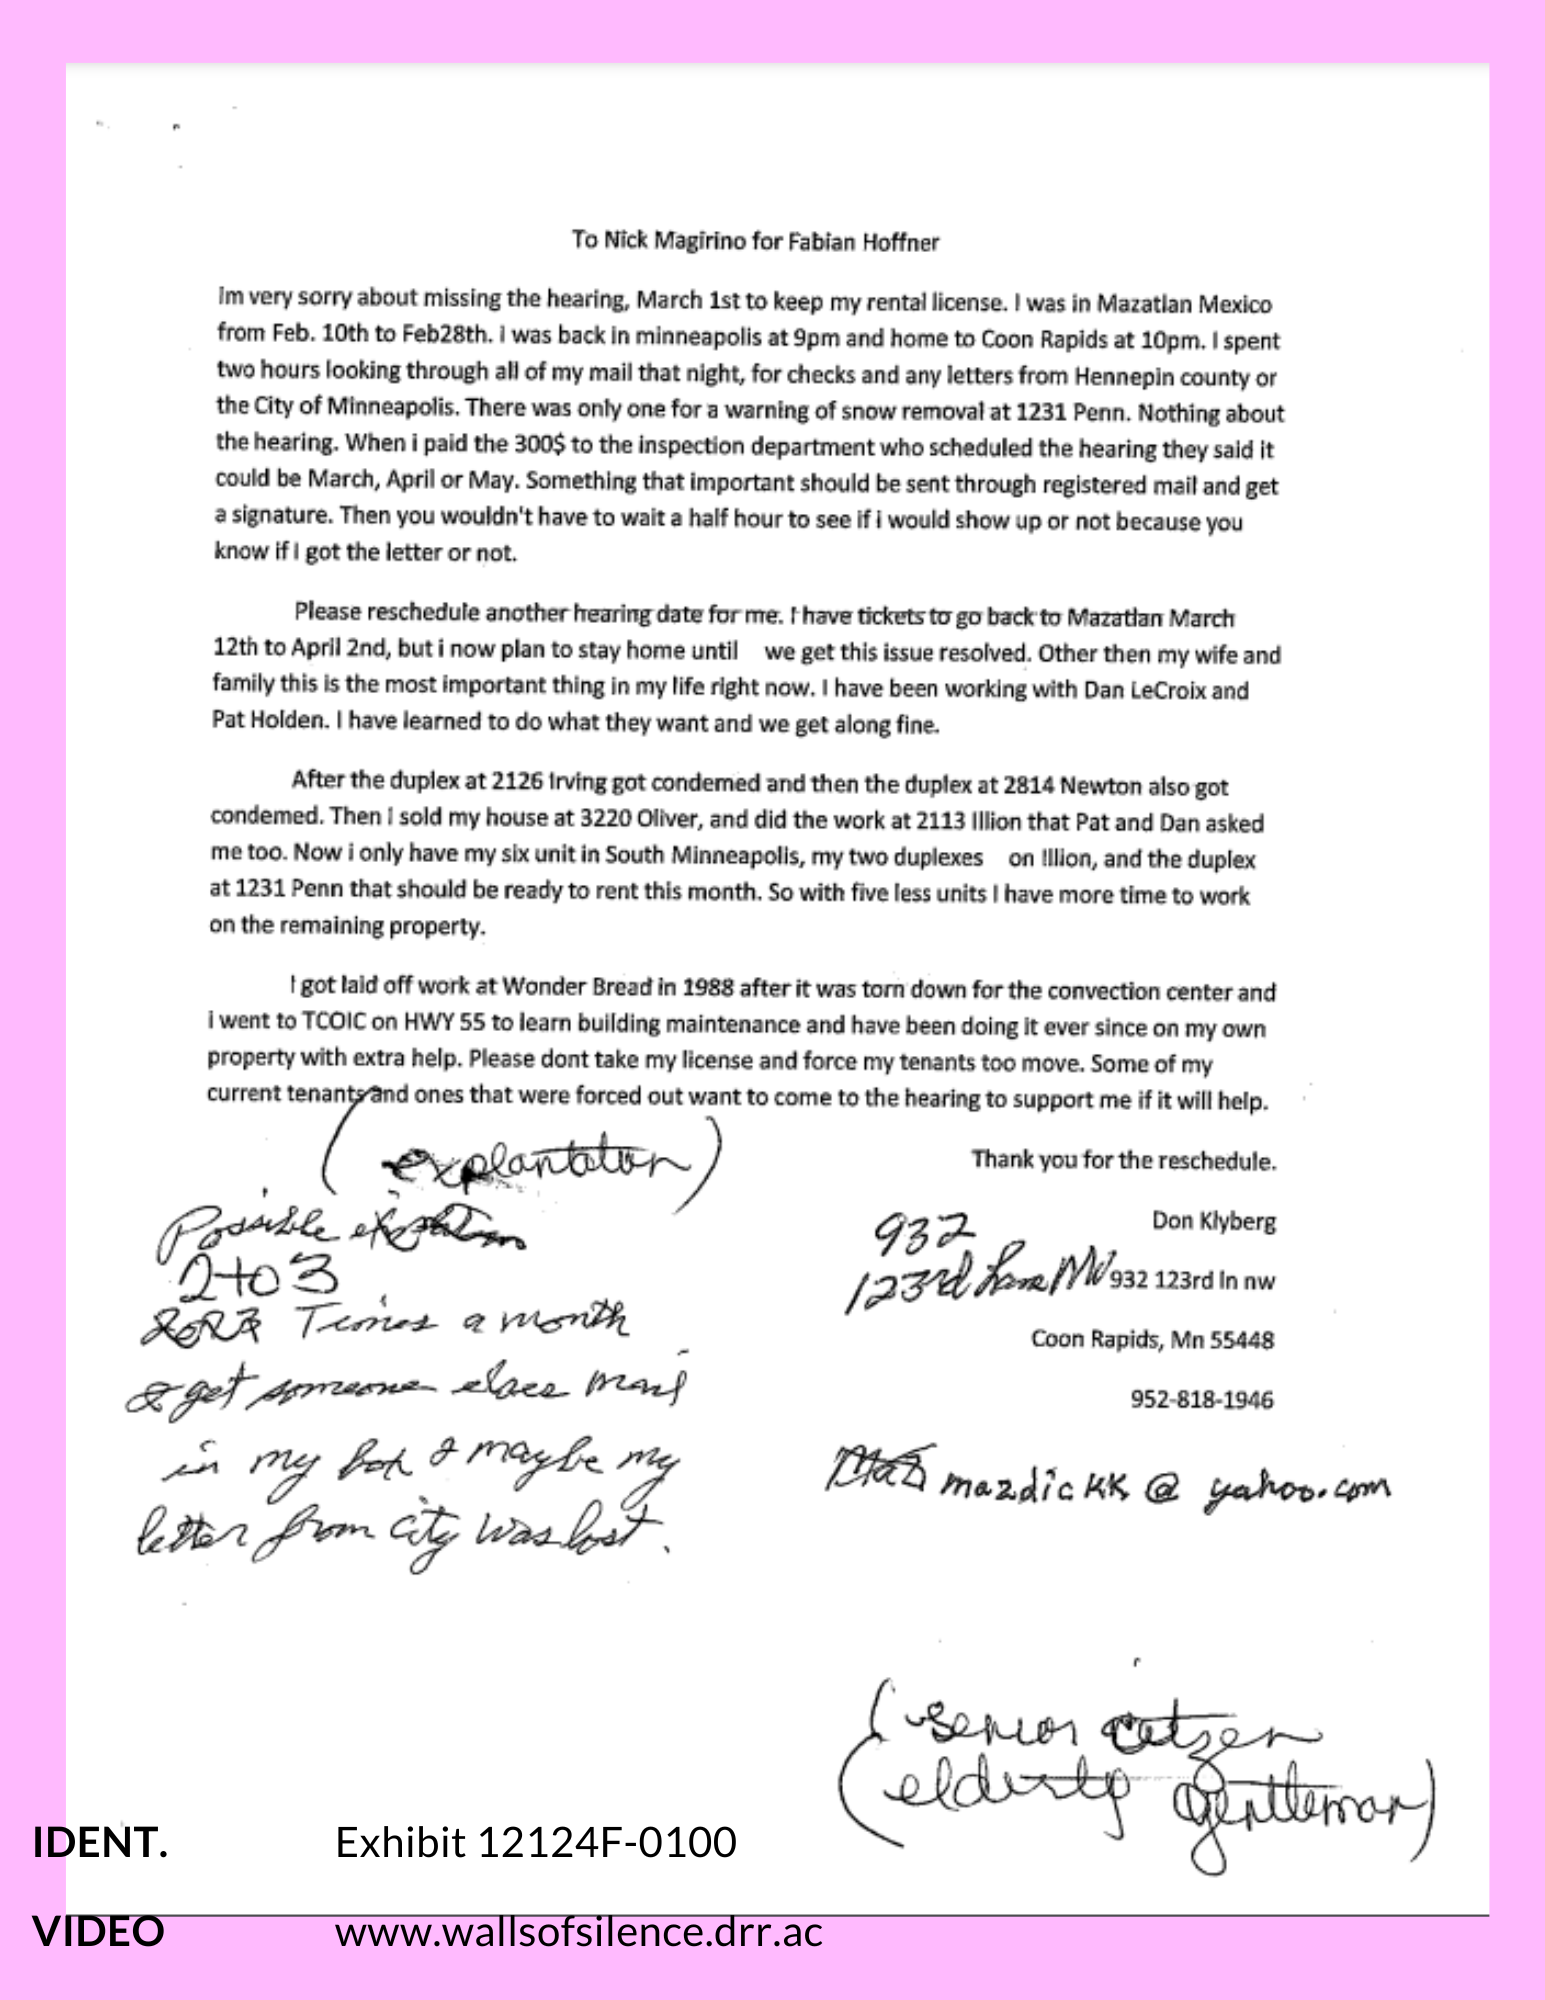 To Nick Magirino for Fabian Hoffner
Im very sorry about missing the hearing, March 1st to keep my rental license. I was in Mazatlan Mexico
from Feb. 10th to Feb28th. I was back in minneapolis at 9pm and home to Coon Rapids at 10pm. I spent
two hours looking through all of my mail that night, for checks and any letters from Hennepin county or
the City of Minneapolis. There was only one for a warning of snow removal at 1231 Penn. Nothing about
the hearing. When i paid the 300$ to the inspection department who scheduled the hearing they said it
could be March, April or May. Something that important should be sent through registered mail and get
a signature. Then you wouldn't have to wait a half hour to see if i would show up or not because you
know if I got the letter or not.
Please reschedule another hearing date for me. I have tickets to go back to Mazatlan March
12th to April 2nd, but i now plan to stay home until we get this issue resolved. Other then my wife and
family this is the most important thing in my life right now. I have been working with Dan LeCroix and
Pat Holden. I have learned to do what they want and we get along fine.
After the duplex at 2126 Irving got condemed and then the duplex at 2814 Newton also got
condemed. Then i sold my house at 3220 Oliver, and did the work at 2113 Illion that Pat and Dan asked
me too. Now i only have my six unit in South Minneapolis, my two duplexes on Illion, and the duplex
at 1231 Penn that should be ready to rent this month. So with five less units I have more time to work
on the remaining property.
I got laid off work at Wonder Bread in 1988 after it was torn down for the convection center and
i went to TCOIC on HWY 55 to learn building maintenance and have been doing it ever since on my own
property with extra help. Please dont take my license and force my tenants too move. Some of my
current tenants and ones that were forced out want to come to the hearing to support me if it will help.
(explantation)
Thank you for the reschedule.
Possible
2 to 3
Times a month
I get someone elses mail
in my box & maybe my
letter from city was lost.
Don Klyberg
932
123rd Lane NW
932 123rd ln nw
Coon Rapids, Mn 55448
952-818-1946
mazdickk@yahoo.com
(senior citizen
(elderly gentleman)
IDENT. Exhibit 12124F-0100
VIDEO www.wallsofsilence.drr.ac